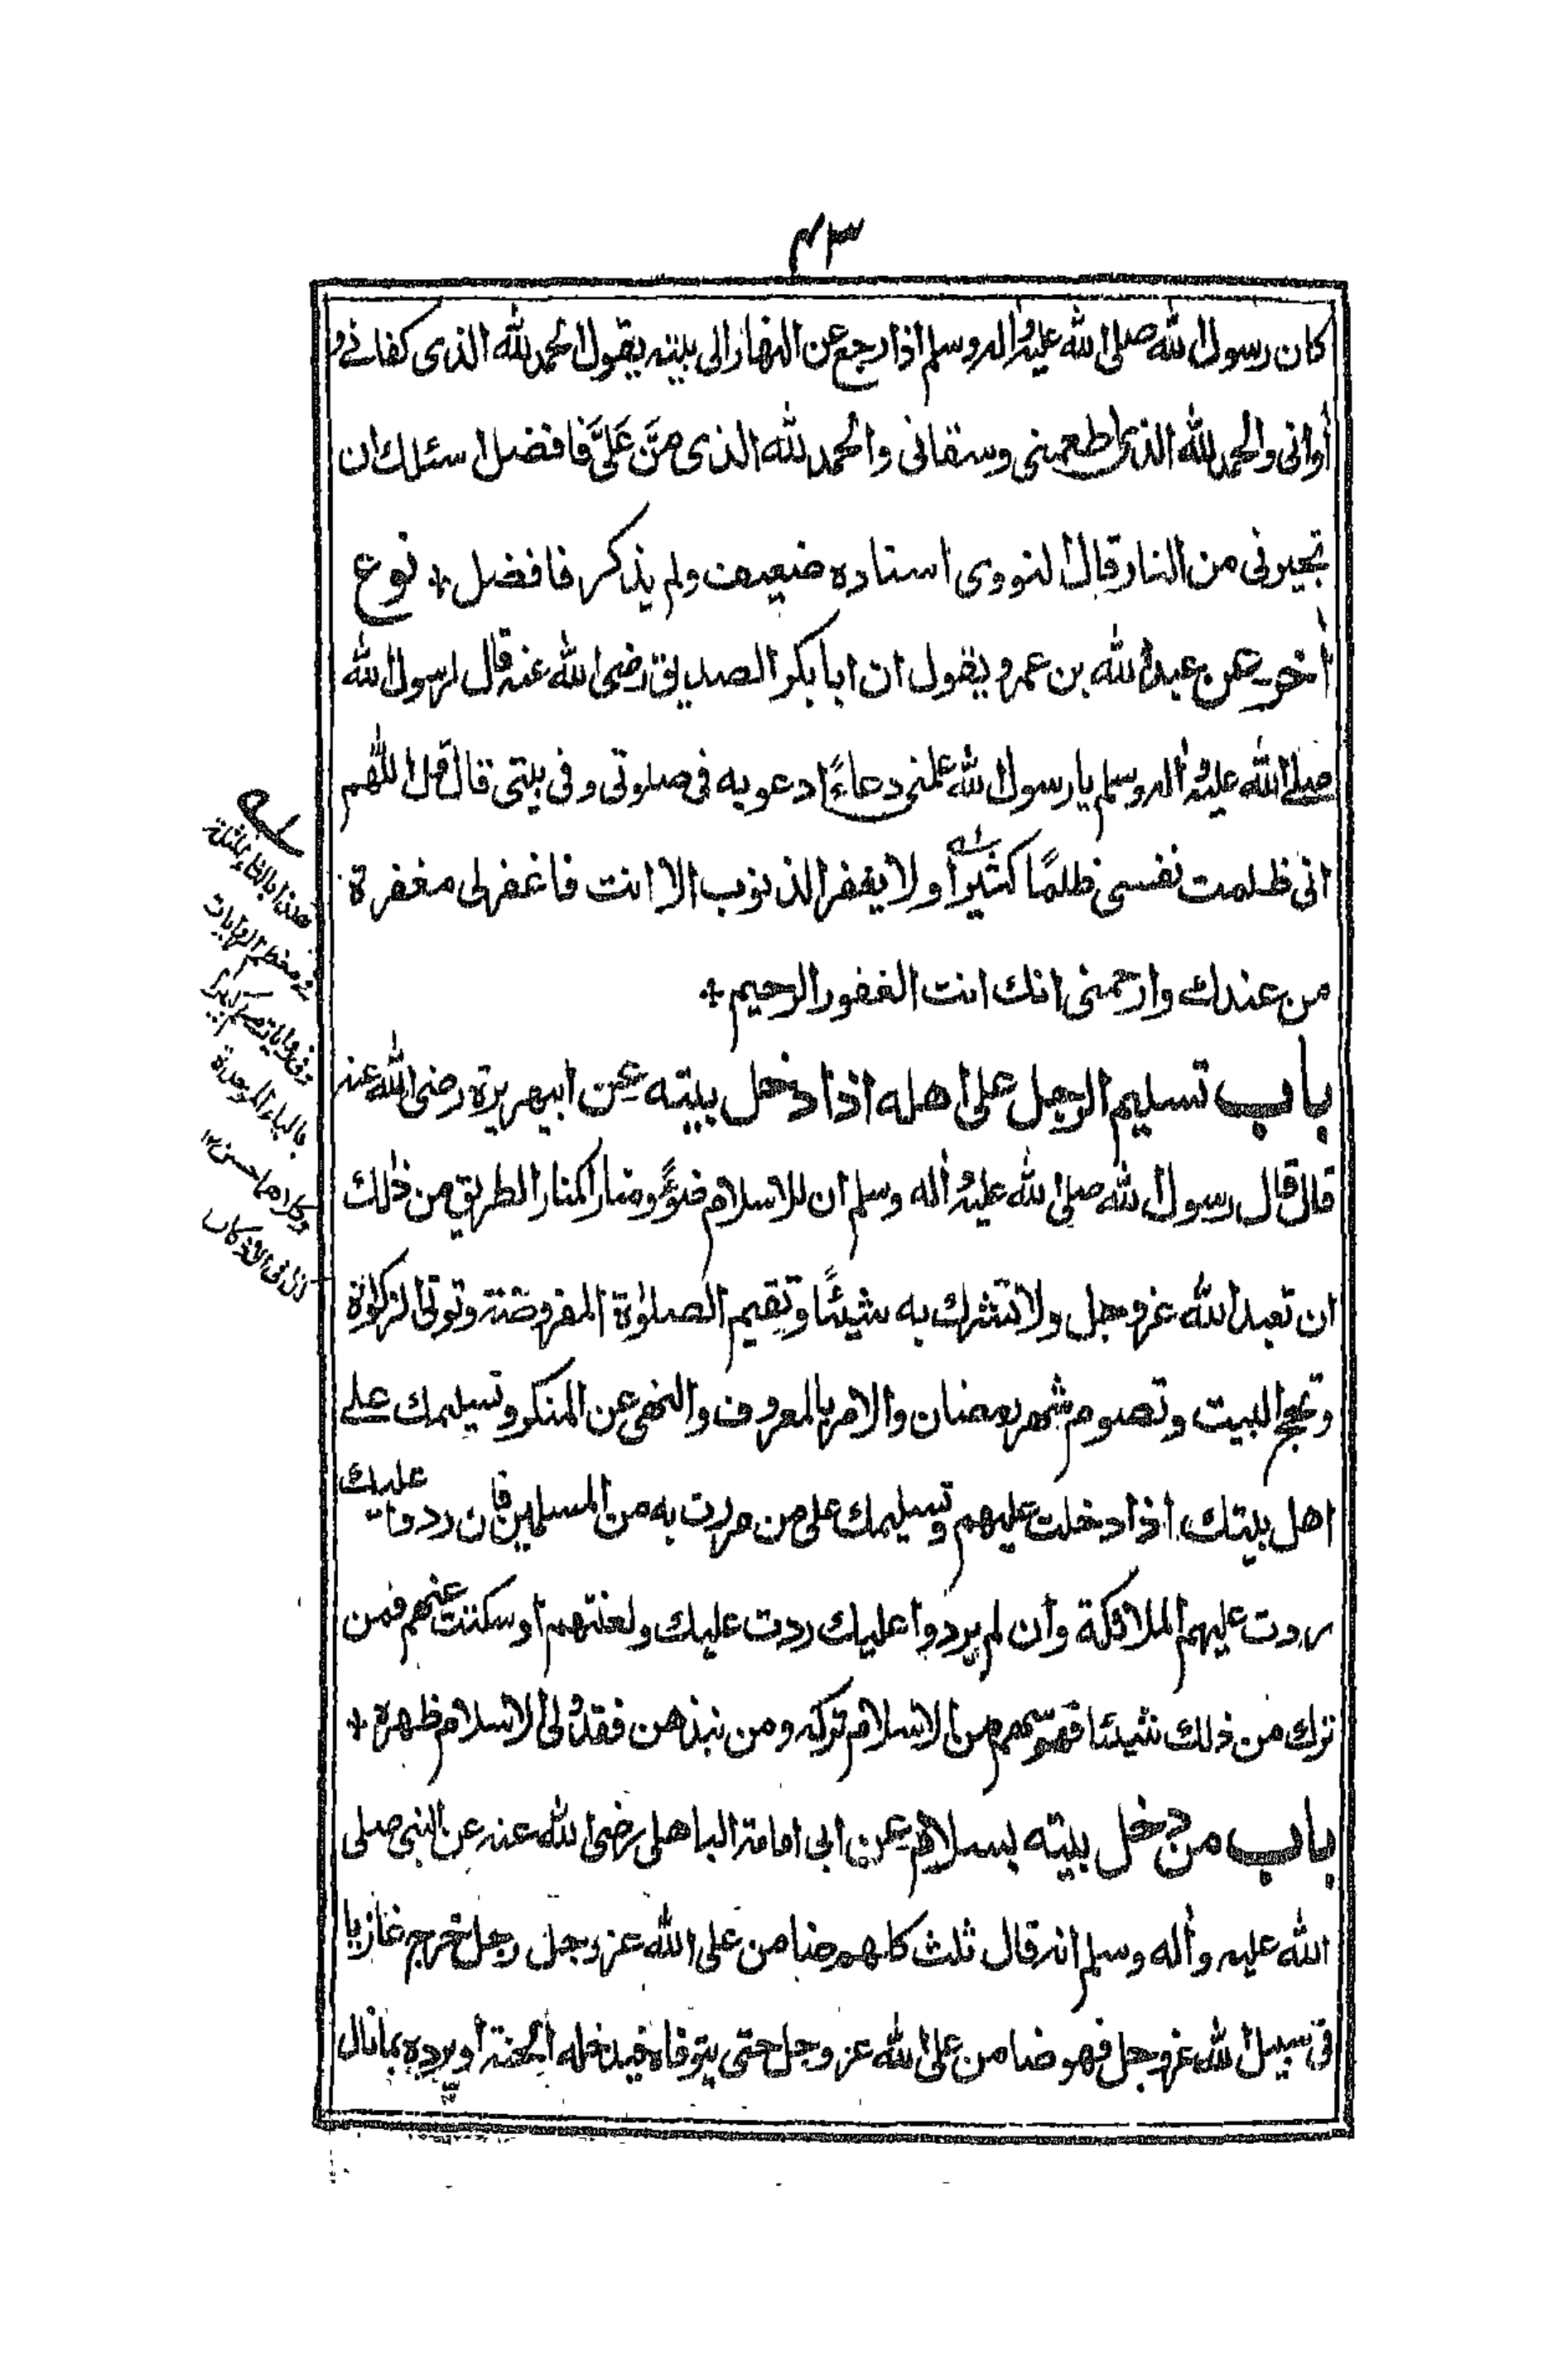 ۴۳
كان رسول الله صلى الله عليه واله وسلم اذا رجع عن النهار الى بيته يقول الحمد لله الذى كفانى و
أوانى والحمد لله الذى اطعمنى وسقانى والحمد لله الذى مَنَّ عَلَىَّ فافضل اسئلك ان
تجيرنى من النار قال النووى اسناده ضعيف ولم يذكر فافضل * نوع
أخر عن عبد الله بن عمرو يقول ان ابا بكر الصديق رضى الله عنه قال لرسول الله
صلى الله عليه واله وسلم يا رسول الله علمنى دعاءً ادعو به فى صلوتى وفى بيتى قال قل اللهم
انى ظلمت نفسى ظلمًا كثيرًا ولا يغفر الذنوب الا انت فاغفر لى مغفرة
من عندك وارحمنى انك انت الغفور الرحيم *
باب تسليم الرجل على اهله اذا دخل بيته عن ابيهريرة رضى الله عنه
قال قال رسول الله صلى الله عليه وأله وسلم ان للاسلام ضوءً ومنارا كمنار الطريق من ذلك
ان تعبد الله عز وجل ولا تشرك به شيئًا وتقيم الصلوٰة المفروضة وتوتى الزكوٰة
وتحج البيت وتصوم شهر رمضان والامر بالمعروف والنهى عن المنكر وتسليمك على
اهل بيتك اذا دخلت عليهم وتسليمك على من مررت به من المسلمين فان ردوا عليك
ردت عليهم الملائكة وان لم يردوا عليك ردت عليك ولعنتهم او سكتت عنهم فمن
ترك من ذلك شيئا فهو سهم من الاسلام تركه ومن نبذهن فقد ولى الاسلام ظهره *
باب من دخل بيته بسلام عن ابى امامة الباهلى رضى الله عنه عن النبى صلى
الله عليه وأله وسلم انه قال ثلث كلهم ضامن على الله عز وجل رجل خرج غازيا
فى سبيل الله عز وجل فهو ضامن على الله عز وجل حتى يتوفاه فيدخله الجنة او يرده بما نال
هذا بالثاء مثلثة
فى معظم الروايات
وفى رواية مسلم كبيرا
بالباء الموحدة
وكلاهما حسن ١٢